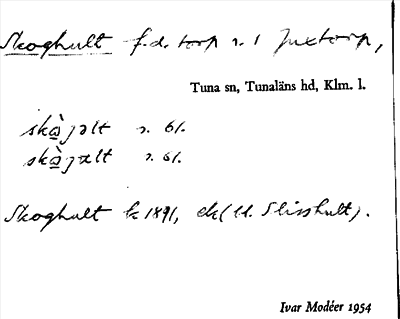 Skoghult f.d. torp n. 1 Juxtorp,
Tuna sn, Tunaläns hd, Klm. l.
skò̱jəlt n. 61.
skò̱jælt n. 61.
Skoghult k 1891, ek (U. Slisshult).
Ivar Modéer 1954